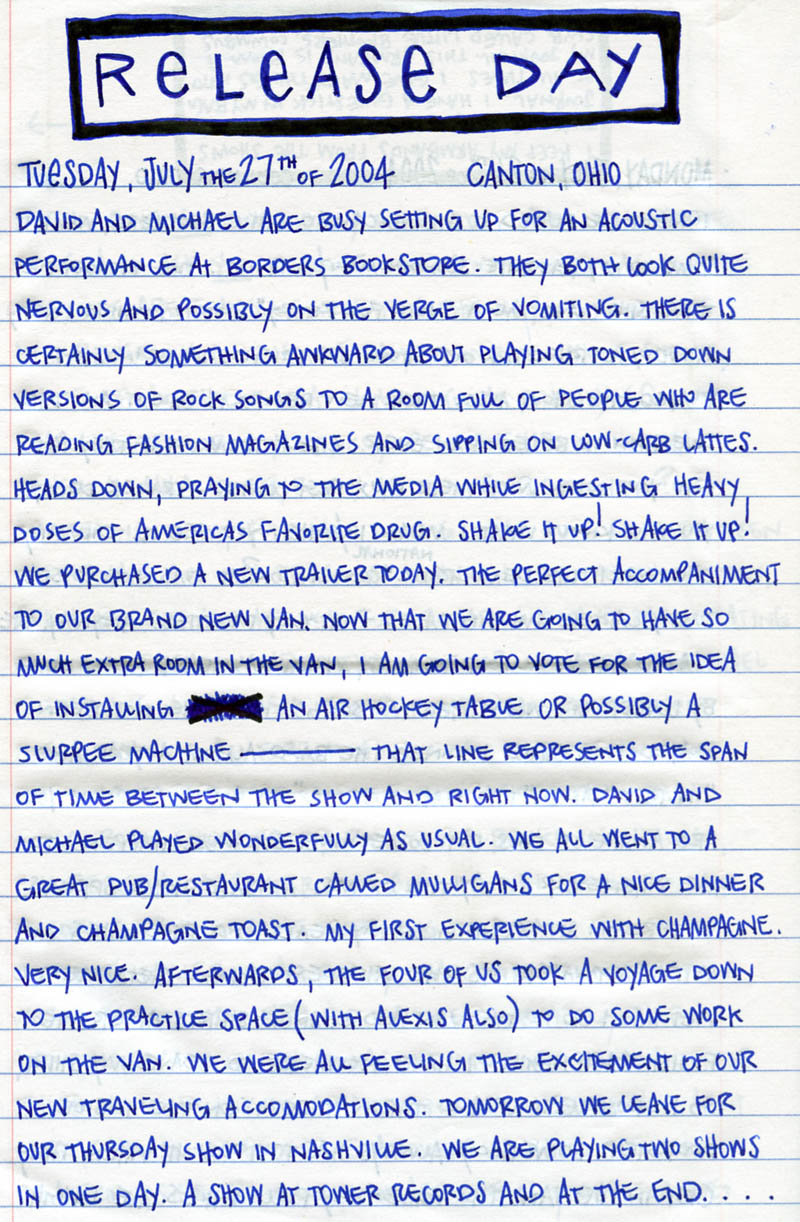 RELEASE DAY
TUESDAY, JULY THE 27TH OF 2004 CANTON, OHIO
DAVID AND MICHAEL ARE BUSY SETTING UP FOR AN ACOUSTIC
PERFORMANCE At BORDERS BOOKSTORE. THEY BOTH LOOK QUITE
NERVOUS AND POSSIBLY ON THE VERGE OF VOMITING. THERE IS
CERTAINLY SOMETHING AWKWARD ABOUT PLAYING TONED DOWN
VERSIONS OF ROCK SONGS TO A ROOM FULL OF PEOPLE WHO ARE
READING FASHION MAGAZINES AND SIPPING ON LOW-CARB LATTES.
HEADS DOWN, PRAYING TO THE MEDIA WHILE INGESTING HEAVY
DOSES OF AMERICAS FAVORITE DRUG. SHAKE IT UP! SHAKE IT UP!
WE PURCHASED A NEW TRAILER TODAY. THE PERFECT ACCOMPANIMENT
TO OUR BRAND NEW VAN. NOW THAT WE ARE GOING TO HAVE SO
MUCH EXTRA ROOM IN THE VAN, I AM GOING TO VOTE FOR THE IDEA
OF INSTALLING AN AIR HOCKEY TABLE OR POSSIBLY A
SLURPEE MACHINE ——— THAT LINE REPRESENTS THE SPAN
OF TIME BETWEEN THE SHOW AND RIGHT NOW. DAVID AND
MICHAEL PLAYED WONDERFULLY AS USUAL. WE ALL WENT TO A
GREAT PUB/RESTAURANT CALLED MULLIGANS FOR A NICE DINNER
AND CHAMPAGNE TOAST. MY FIRST EXPERIENCE WITH CHAMPAGNE.
VERY NICE. AFTERWARDS, THE FOUR OF US TOOK A VOYAGE DOWN
TO THE PRACTICE SPACE (WITH ALEXIS ALSO) TO DO SOME WORK
ON THE VAN. WE WERE ALL FEELING THE EXCITEMENT OF OUR
NEW TRAVELING ACCOMODATIONS. TOMORROW WE LEAVE FOR
OUR THURSDAY SHOW IN NASHVILLE. WE ARE PLAYING TWO SHOWS
IN ONE DAY. A SHOW AT TOWER RECORDS AND AT THE END. . . .